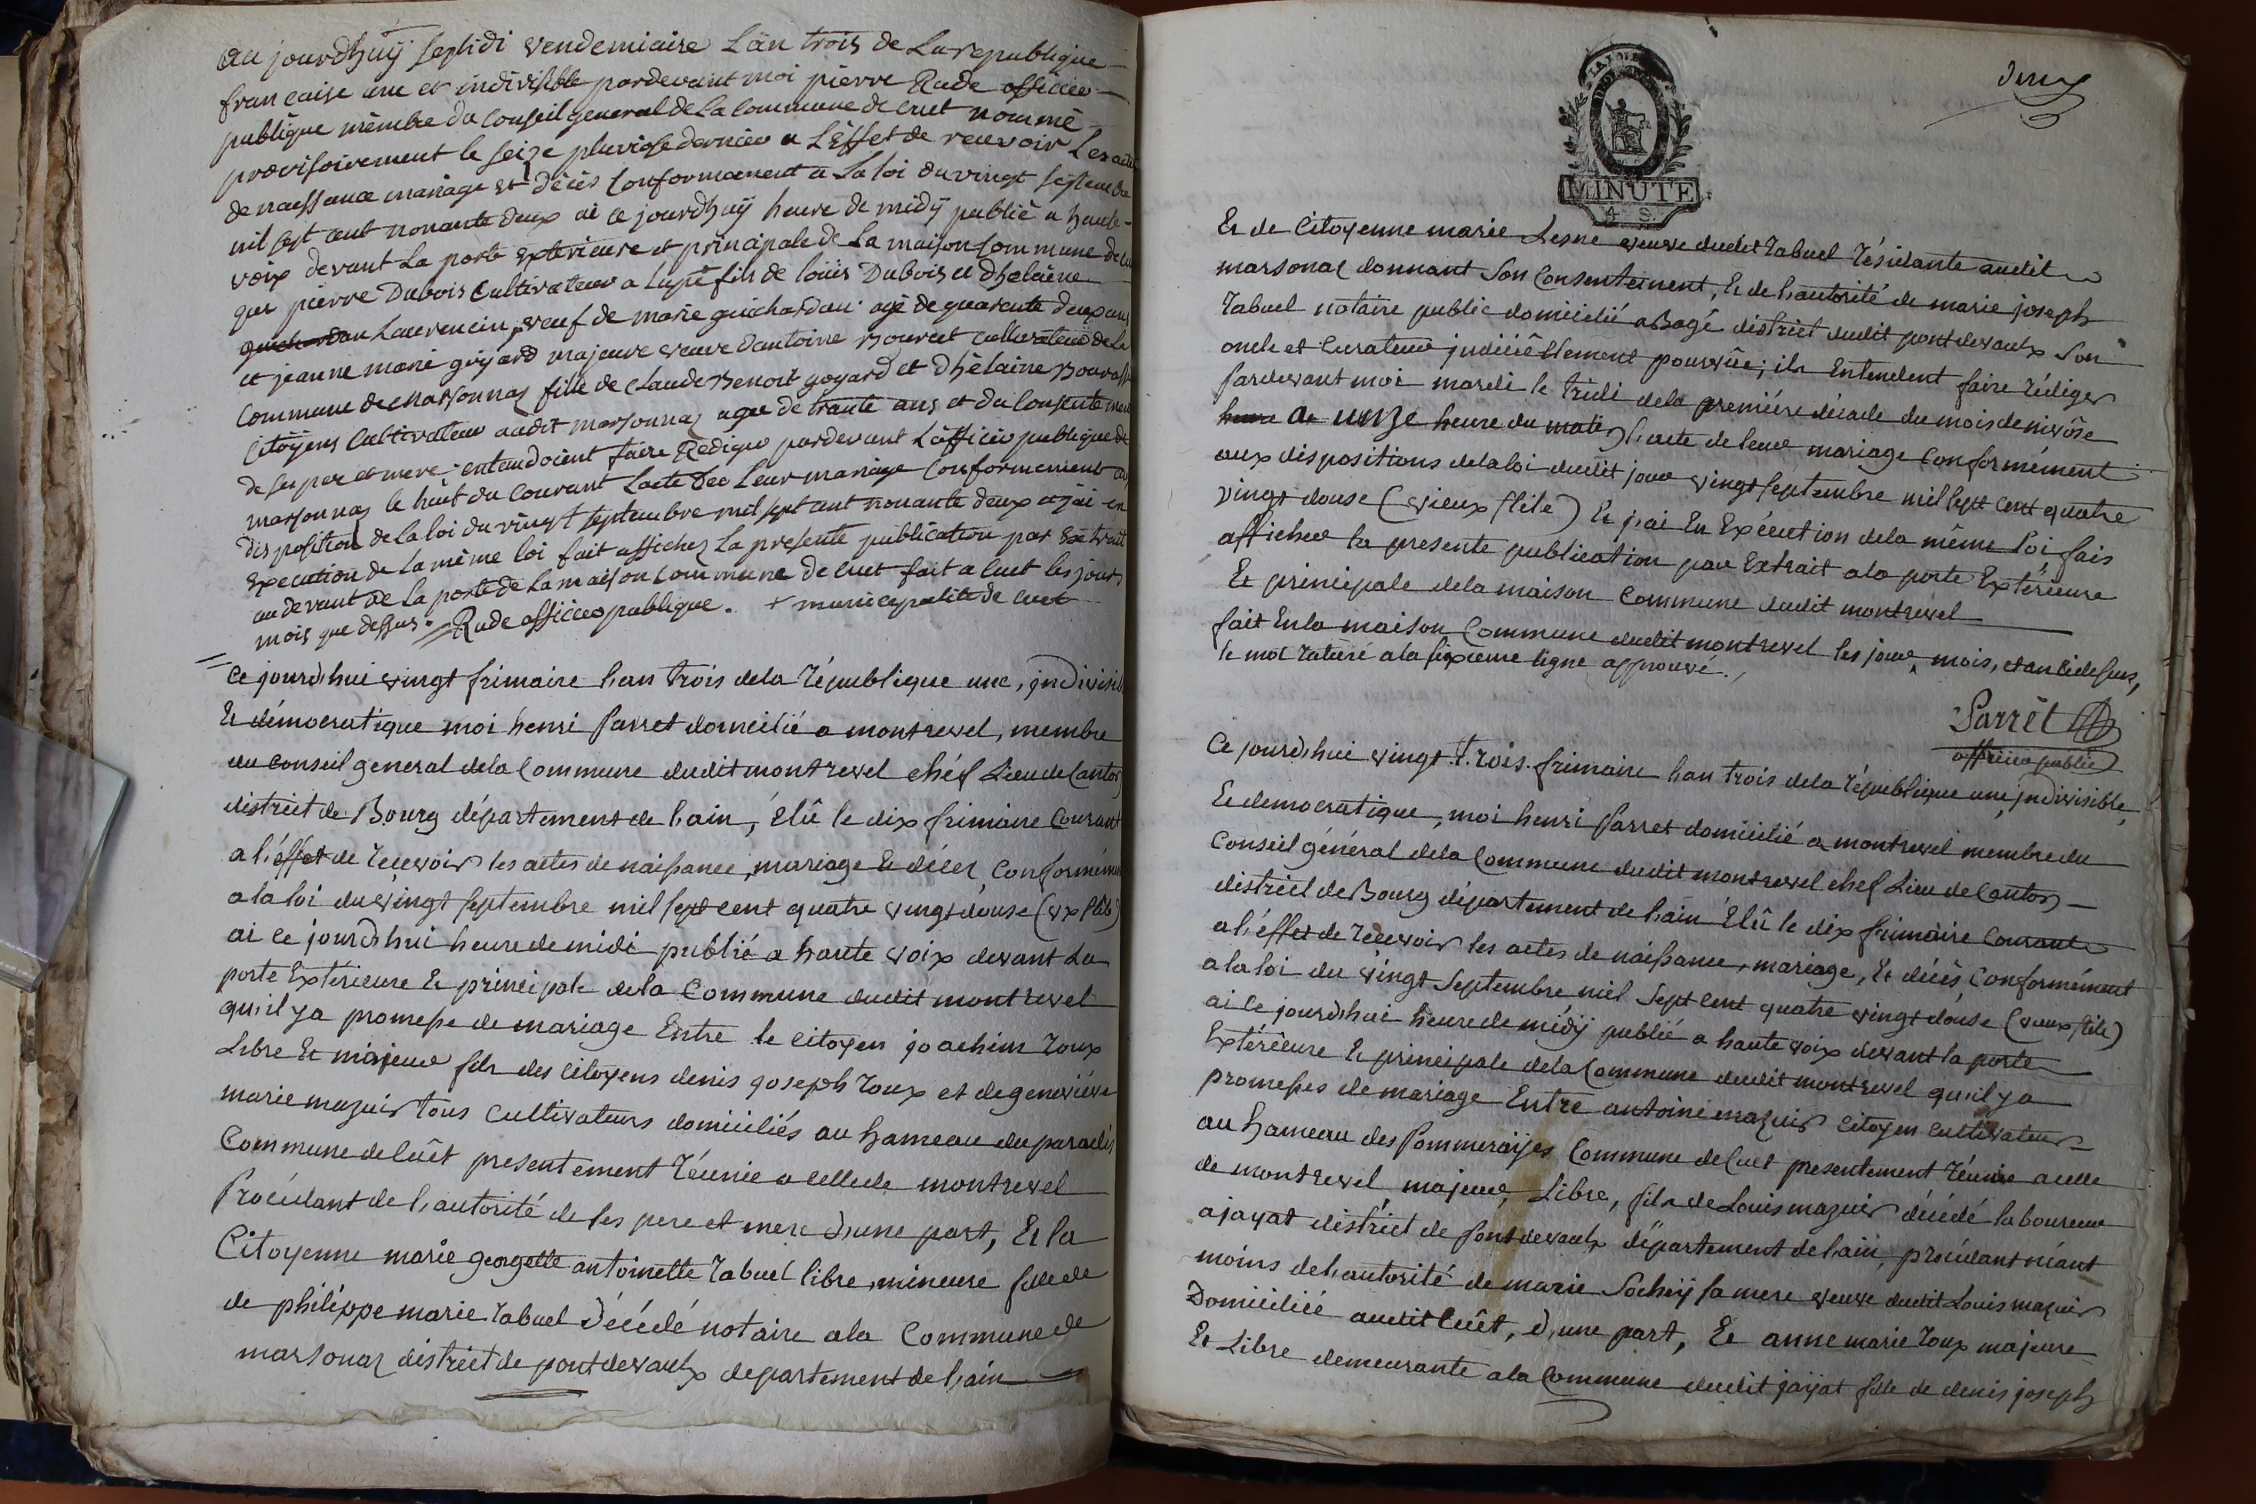 au jourdhuÿ septidi vendemiaire Làn trois de La republique
francaise une et indivisible pardevant moi pierre Rude officier
publique mêmbre du Conseil general de La Commune de Cuet nommé
provisoirement le seize pluviose dernier a L'Effet de recevoir Les actes
de naissance mariage et décès Conformement a La loi du vingt septembre
mil sept cent nonante deux ai ce jourdhuÿ heure de midÿ publié a haute
voix devant La porte Exterieure et principale de La maison Commune de
que pierre Dubois Cultivateur a fils de loüis Dubois et dhelaine
guichardan Laurencin, veuf de marie guichardan agé de quarente deux ans
et jeanne marie goÿard majeure veuve dantoine Bouvet cultivateur de La
Commune de Marsonnaz fille de Claude Benoit goyard et dhélaine
Citoÿens Cultivateur audit marsonnaz agee de trante ans et du Consentement
de ses per et mere entendoient faire Rediger pardevant Lofficier publique de
marsonnaz le huit du Courant Lacte Dee Leur mariage Conformement au
disposition de La loi du vingt septembre mil sept cent nonante deux et jai en
Execution de La même loi fait affichez La presente publication par Extrait
au devant de La porte de La maison Commune de Cuet fait a Cuet les jour,
mois que dessus. Rude officier publique. + municipalité de Cuet
Ce jourd,hui vingt frimaire l,an trois dela République une, jndivisible
Et démocratique moi henri Parret domicilié a montrevel, membre
du Conseil general dela Commune dudit montrevel chéf Lieu de Canton
district de Bourg département de l,ain, Élû le dix frimaire Courant
a l'éffet de recevoir les actes de naissance, mariage Et décez, Conformément
a la loi du vingt septembre mil sept cent quatre vingt douse (vx stile)
ai ce jourd'hui heure de midi publié a haute voix devant La
porte Extérieure Et principale dela Commune dudit montrevel
qu,il y a promesse de mariage Entre le citoyen joachim roux
Libre Et majeur fils des citoyens denis joseph roux et de genevieve
marie mazuir tous cultivateurs domiciliés au hameau du paradis
Commune de Cuêt presentement réunie a celle de montrevel
Procédant de l,autorité de ses pere et mere d,une part, Et la
Citoyenne marie georgette antoinette rabuel libre, mineure fille de
de philippe marie rabuel décédé notaire a la Commune de
marsonaz district de pontdevaulx departement de l,ain
deux
MINUTE
4 S
Et de Citoyenne marie Lesne veuve dudit rabuel résidante audit
marsonaz donnant son Consentement, Et de l,autorité de marie joseph
rabuel notaire public domicilié a Bagé district dudit pontdevaulx son
oncle et Curateur judiciêllement pourvüe; ils Entendent faire rédiger
Pardevant moi mardi le tridi dela premiére décade du mois de nivôse
heure a unze heure du matin l,acte de leur mariage Conformément
aux dispositions dela loi dudit jour vingt septembre mil sept cent quatre
vingt douse (vieux stile) Et j,ai En Exécution dela même Loi, fais
afficher la presente publication par Extrait a la porte Extérieure
Et principale dela maison Commune dudit montrevel
fait En la maison Commune dudit montrevel les jour, mois, et an ci dessus,
le mot raturé a la sixieme ligne approuvé.
Parrêt
officier public
Ce jourd,hui vingt trois frimaire l,an trois dela république une, jndivisible
Et democratique, moi henri Parret domicilié a montrevel membre du
Conseil général dela Commune dudit montrevel chef Lieu de Canton
district de Bourg département de l,ain Élû le dix frimaire Courant
a l'éffet de recevoir les actes de naissance, mariage, Et décès, Conformément
a la loi du vingt Septembre mil Sept cent quatre vingt douse (vieux stile)
ai ce jourd,hui heure de midÿ publié a haute voix devant la porte
Extérieure Et principale dela Commune dudit montrevel qu,il y a
promesses de mariage Entre antoine mazuir Citoyen cultivateur
au hameau des Pommeraÿes Commune de Cuet presentement réunie a celle
de montrevel, majeur, Libre, fils de Louis mazuir décédé laboureur
a jayat district de Pontdevaulx département de l,ain, procédant néant
moins de l,autorité de marie Sochaÿ sa mere veuve dudit Louis mazuir
Domiciliée audit Cuêt, d,une part, Et anne marie roux majeure
Et Libre demeurante a la Commune dudit jaÿat fille de denis joseph